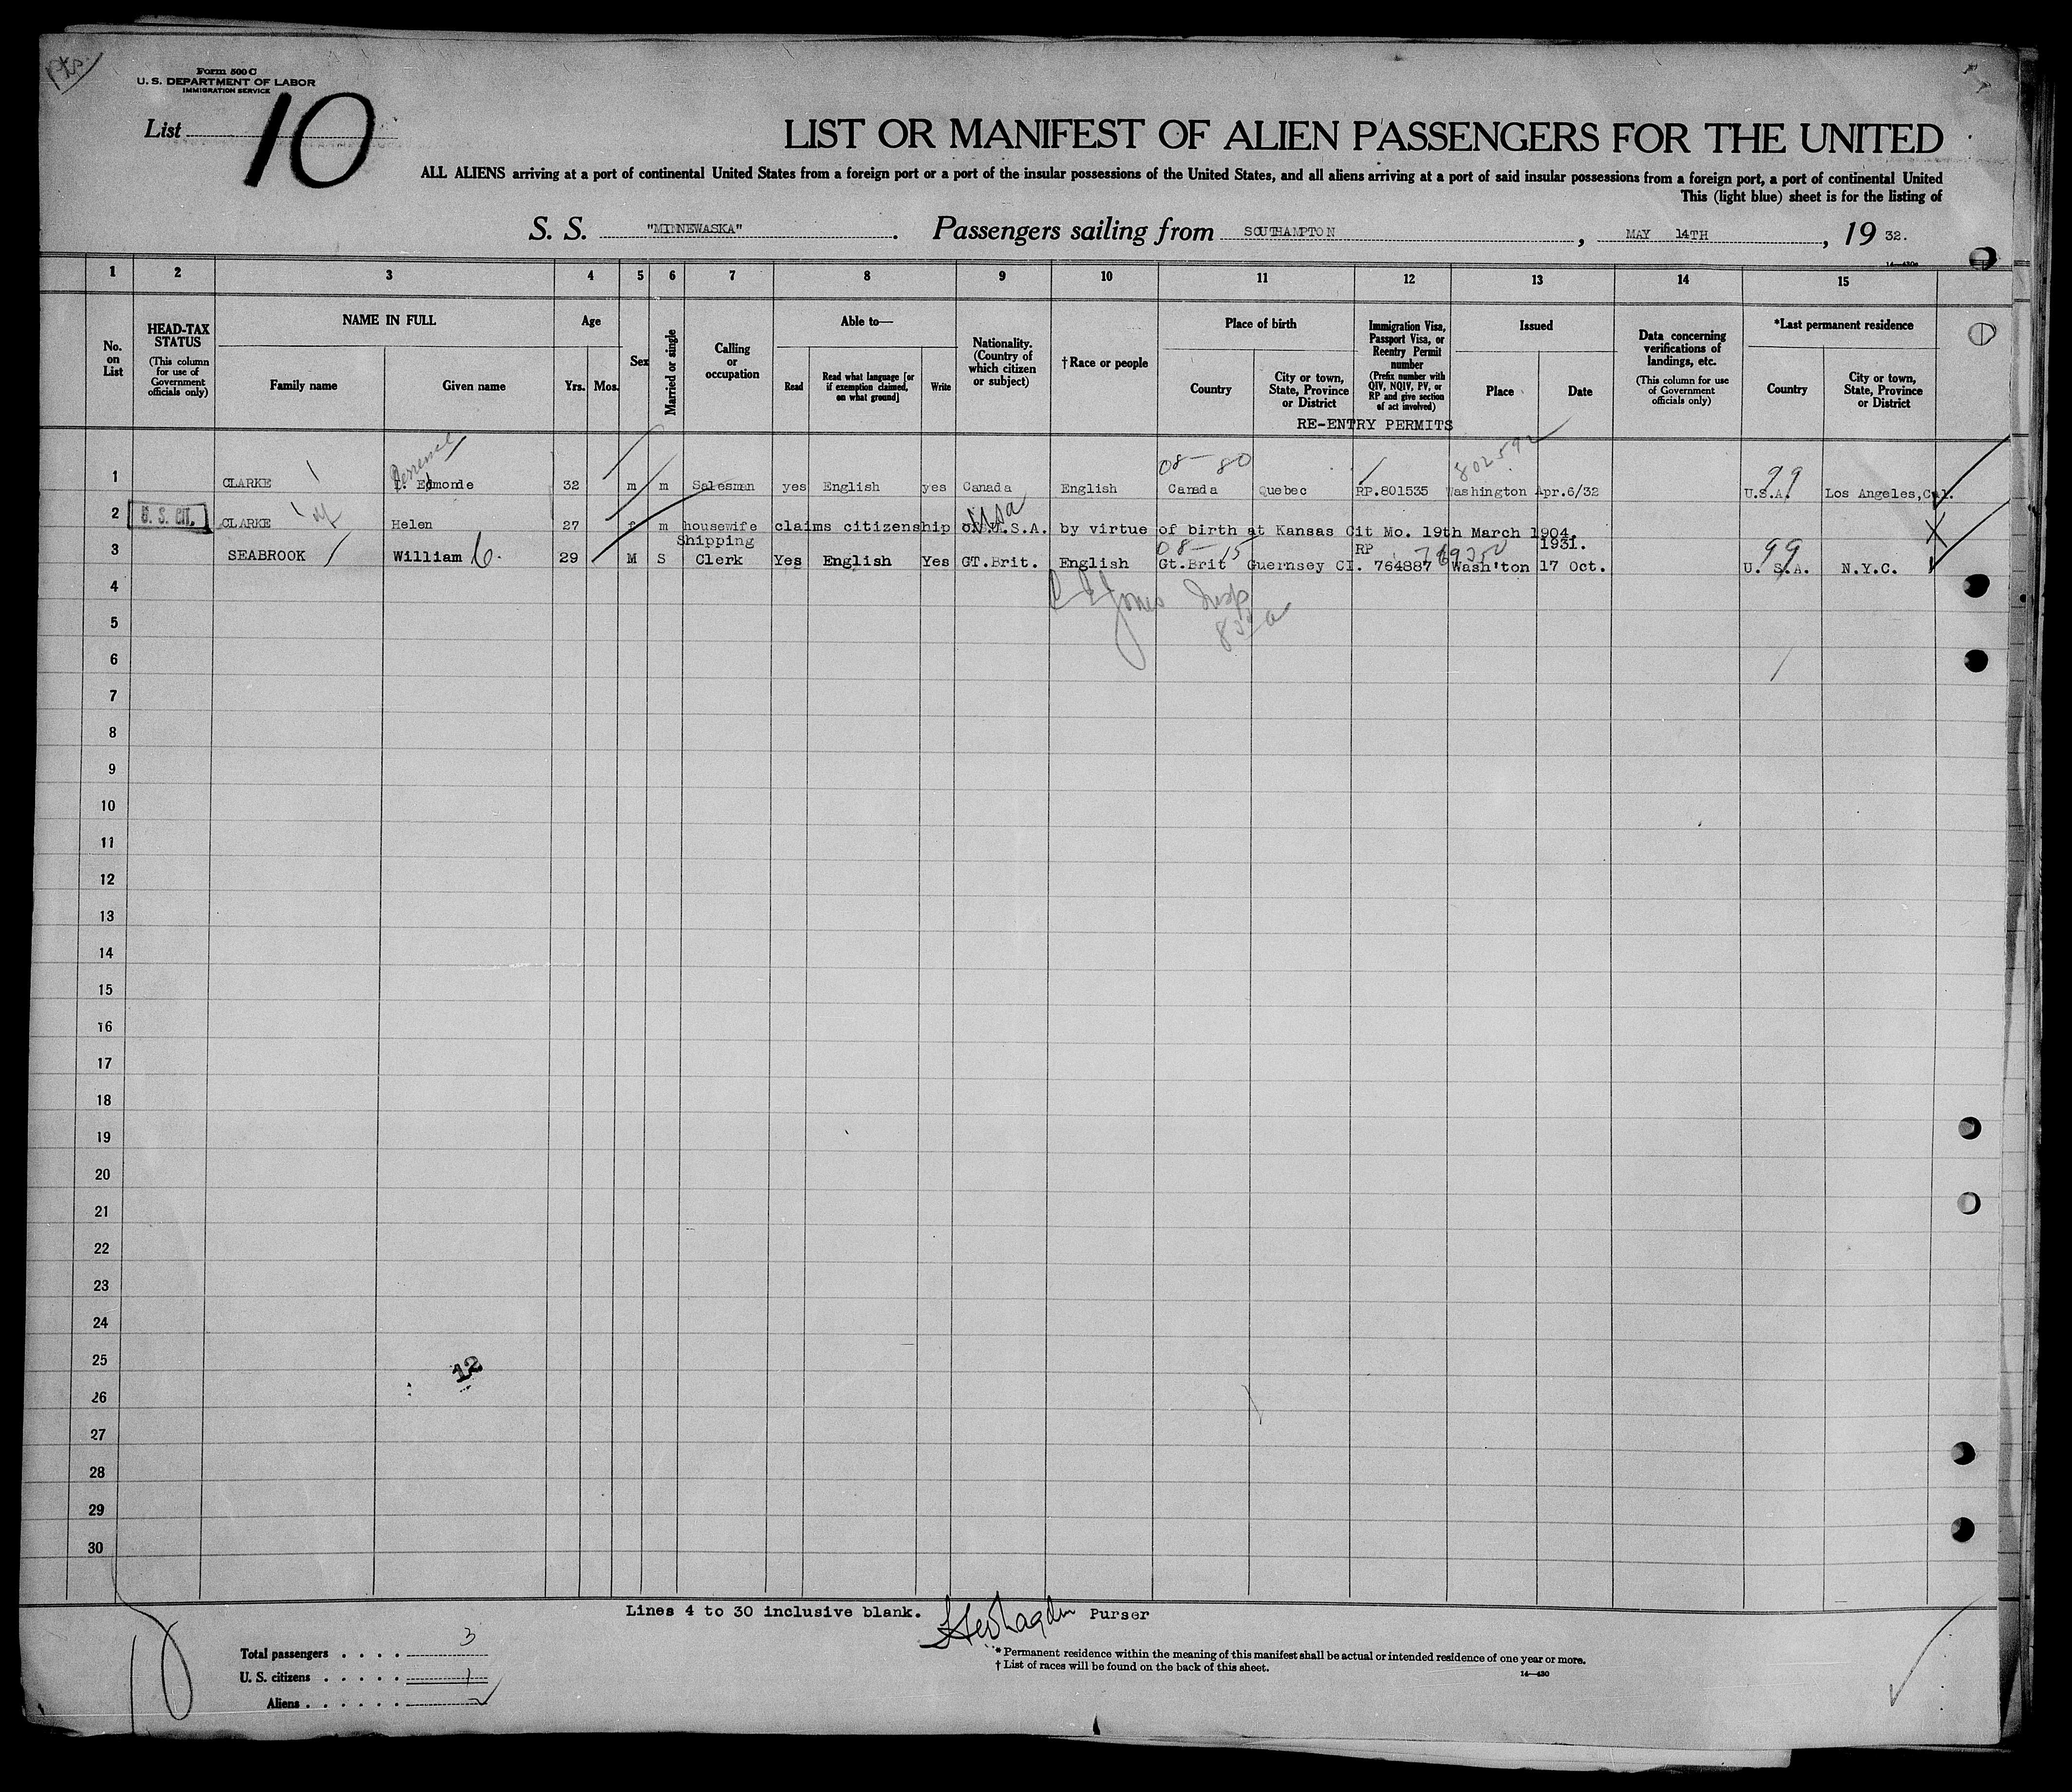 Pts.
Form 500 C
U. S. DEPARTMENT OF LABOR
IMMIGRATION SERVICE
List 10
LIST OR MANIFEST OF ALIEN PASSENGERS FOR THE UNITED
ALL ALIENS arriving at a port of continental United States from a foreign port or a port of the insular possessions of the United States, and all aliens arriving at a port of said insular possessions from a foreign port, a port of continental United
This (light blue) sheet is for the listing of
S. S. "MINNEWASKA". Passengers sailing from SOUTHAMPTON, MAY 14TH, 19 32.
1 2 3 4 5 6 7 8 9 10 11 12 13 14 15
No. on List
HEAD-TAX STATUS (This column for use of Government officials only)
NAME IN FULL Family name Given name
Age Yrs. Mos.
Sex
Married or single
Calling or occupation
Able to— Read Read what language [or if exemption claimed, on what ground] Write
Nationality. (Country of which citizen or subject)
†Race or people
Place of birth Country City or town, State, Province or District
Immigration Visa, Passport Visa, or Reentry Permit number (Prefix number with QIV, NQIV, PV, or RP and give section of act involved)
Issued Place Date
Data concerning verifications of landings, etc. (This column for use of Government officials only)
*Last permanent residence Country City or town, State, Province or District
RE-ENTRY PERMITS
08— 80 802592 99
1 CLARKE Edmonde 32 m m Salesman yes English yes Canada English Canada Quebec RP.801535 Washington Apr.6/32 U.S.A. Los Angeles, Cal.
usa
2 U. S. CIT. CLARKE Helen 27 f m housewife claims citizenship of U.S.A. by virtue of birth at Kansas Cit Mo. 19th March 1904.
Shipping 08— 15 RP 1931. 99
3 SEABROOK William C. 29 M S Clerk Yes English Yes GT.Brit. English Gt.Brit Guernsey CI. 764887 Wash'ton 17 Oct. U. S.A. N.Y.C.
Jones Insp
4
5
6
7
8
9
10
11
12
13
14
15
16
17
18
19
20
21
22
23
24
25
12
26
27
28
29
30
Lines 4 to 30 inclusive blank. Purser
Total passengers . . . . 3
U. S. citizens . . . . . 1
Aliens . . . . . . 2
* Permanent residence within the meaning of this manifest shall be actual or intended residence of one year or more.
† List of races will be found on the back of this sheet.
14—430
10